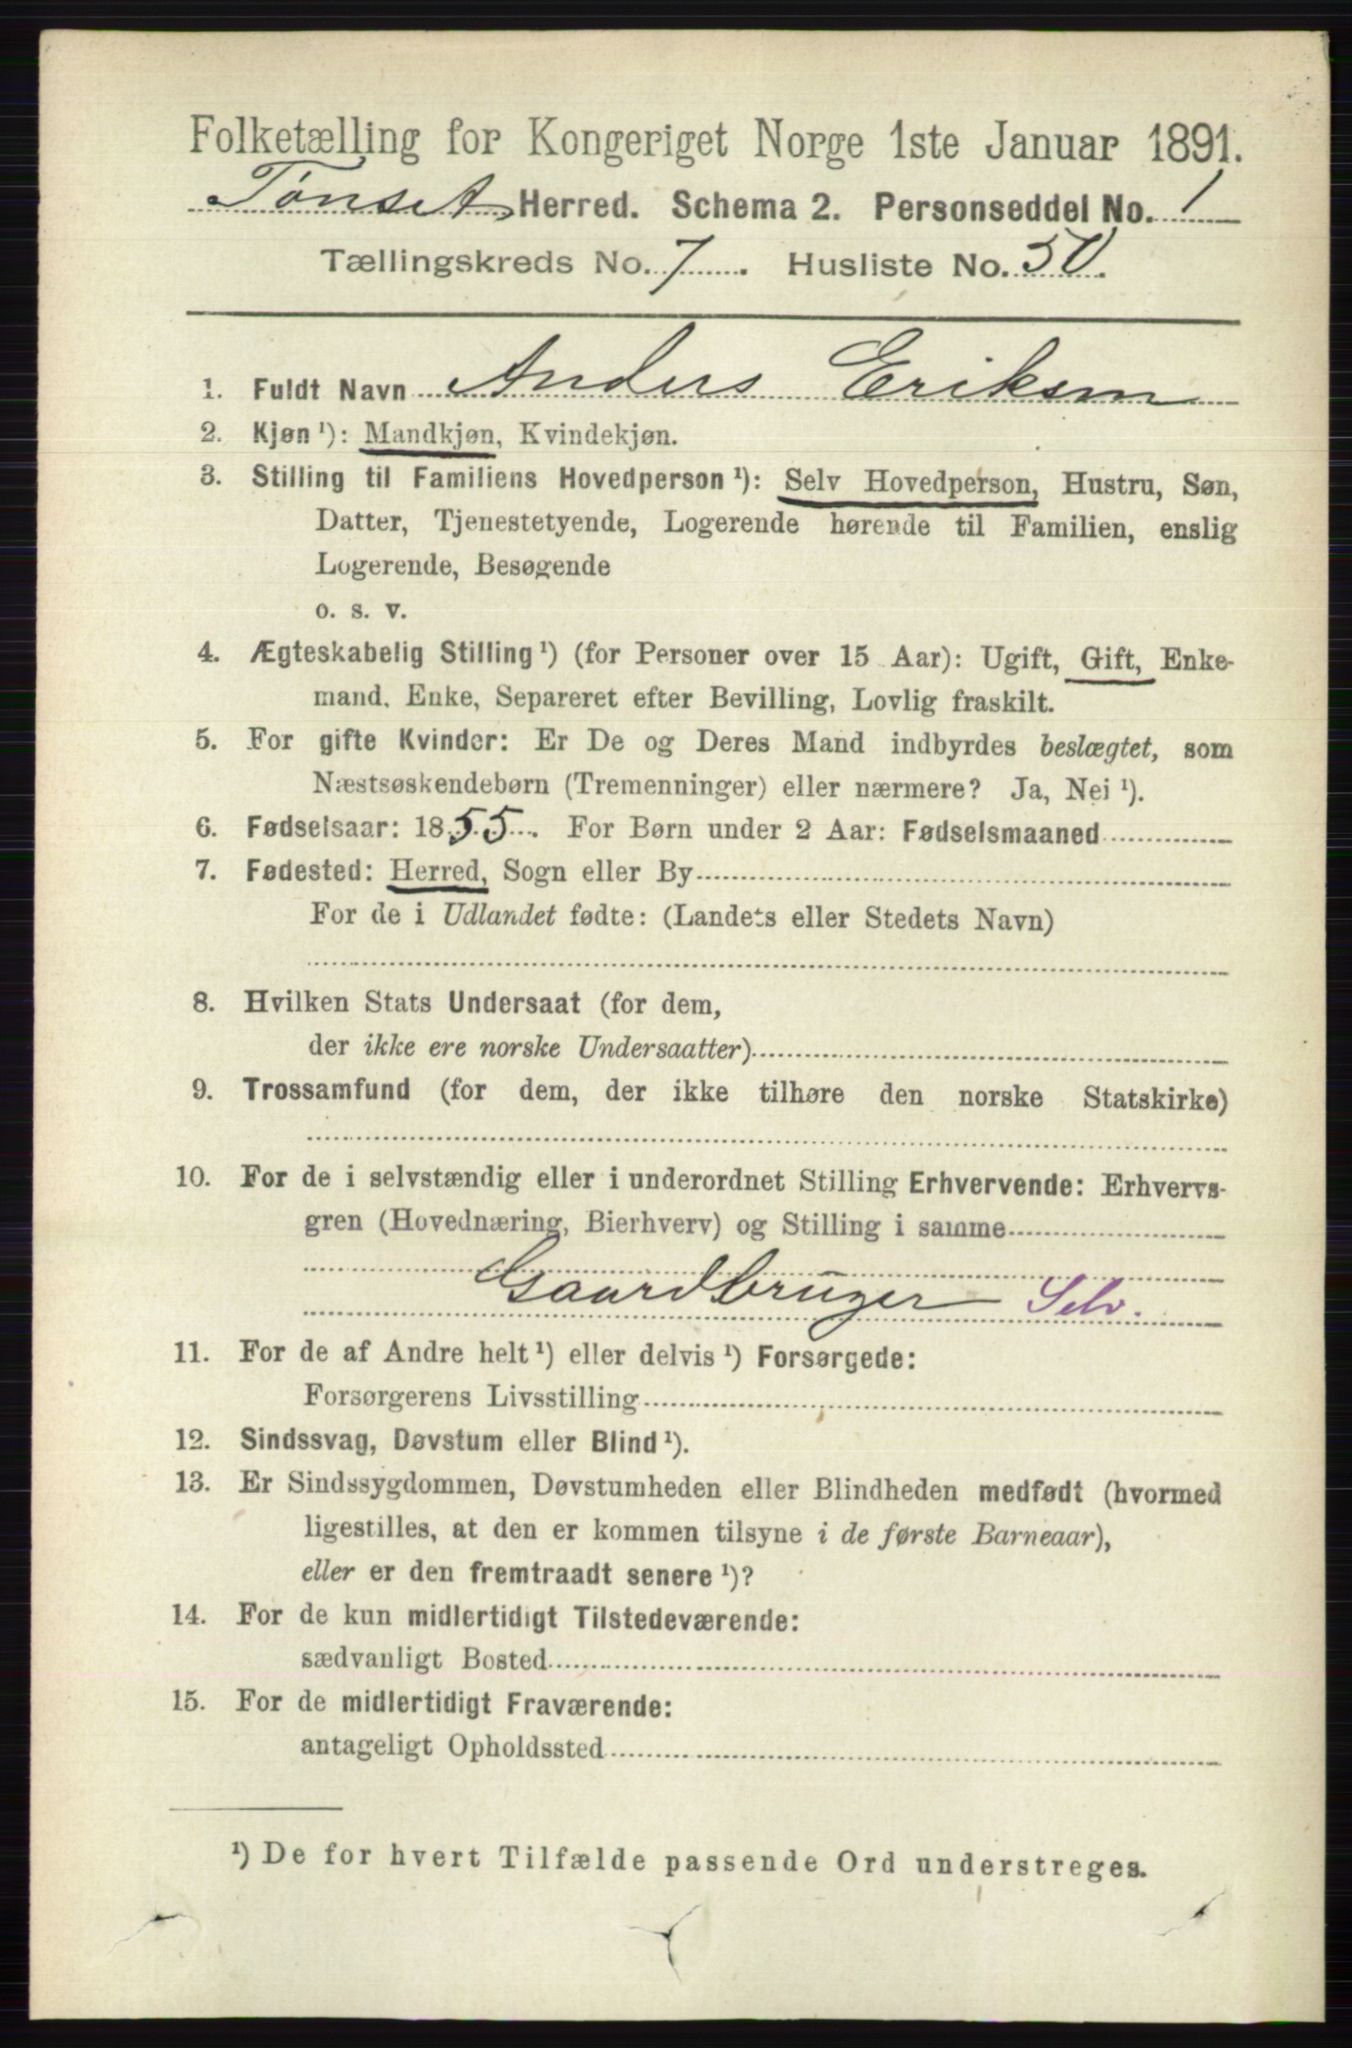 Folketælling for Kongeriget Norge 1ste Januar 1891.
Tønset Herred. Schema 2. Personseddel No. 1
Tællingskreds No. 7. Husliste No. 50.
1. Fuldt Navn Anders Eriksen
2. Kjøn ¹): Mandkjøn, Kvindekjøn.
3. Stilling til Familiens Hovedperson ¹): Selv Hovedperson, Hustru, Søn,
Datter, Tjenestetyende, Logerende hørende til Familien, enslig
Logerende, Besøgende
o. s. v.
4. Ægteskabelig Stilling ¹) (for Personer over 15 Aar): Ugift, Gift, Enke-
mand, Enke, Separeret efter Bevilling, Lovlig fraskilt.
5. For gifte Kvinder: Er De og Deres Mand indbyrdes beslægtet, som
Næstsøskendebørn (Tremenninger) eller nærmere? Ja, Nei ¹).
6. Fødselsaar: 1855. For Børn under 2 Aar: Fødselsmaaned
7. Fødested: Herred, Sogn eller By
For de i Udlandet fødte: (Landets eller Stedets Navn)
8. Hvilken Stats Undersaat (for dem,
der ikke ere norske Undersaatter)
9. Trossamfund (for dem, der ikke tilhøre den norske Statskirke)
10. For de i selvstændig eller i underordnet Stilling Erhvervende: Erhvervs-
gren (Hovednæring, Bierhverv) og Stilling i samme
Gaardbruger Selv.
11. For de af Andre helt ¹) eller delvis ¹) Forsørgede:
Forsørgerens Livsstilling
12. Sindssvag, Døvstum eller Blind ¹).
13. Er Sindssygdommen, Døvstumheden eller Blindheden medfødt (hvormed
ligestilles, at den er kommen tilsyne i de første Barneaar),
eller er den fremtraadt senere ¹)?
14. For de kun midlertidigt Tilstedeværende:
sædvanligt Bosted
15. For de midlertidigt Fraværende:
antageligt Opholdssted
¹) De for hvert Tilfælde passende Ord understreges.